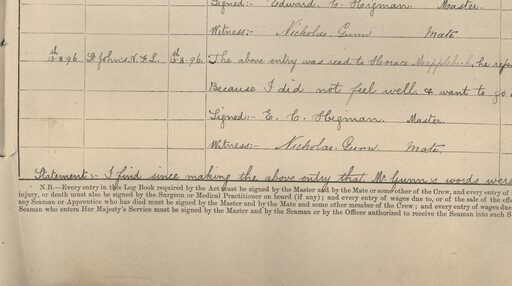 Signed:- Edward C. Higman Master.
Witness:- Nicholas Gunn Mate
13th-8-96 St John's N.F.L. 13th-8-96. The above entry was read to Horace Mapplebeck, he
Because I did not feel well. & want to go
Signed:- E. C. Higman. Master.
Witness:- Nicholas Gunn. Mate.
Statement:- I find since making the above entry that Mr Gunn's words were
N.B.—Every entry in this Log Book required by the Act must be signed by the Master and by the Mate or some other of the Crew, and every entry of
injury, or death must also be signed by the Surgeon or Medical Practitioner on board (if any); and every entry of wages due to, or of the sale of the
any Seaman or Apprentice who has died must be signed by the Master and by the Mate and some other member of the Crew; and every entry of wages due
Seaman who enters Her Majesty's Service must be signed by the Master and by the Seaman or by the Officer authorized to receive the Seaman into such